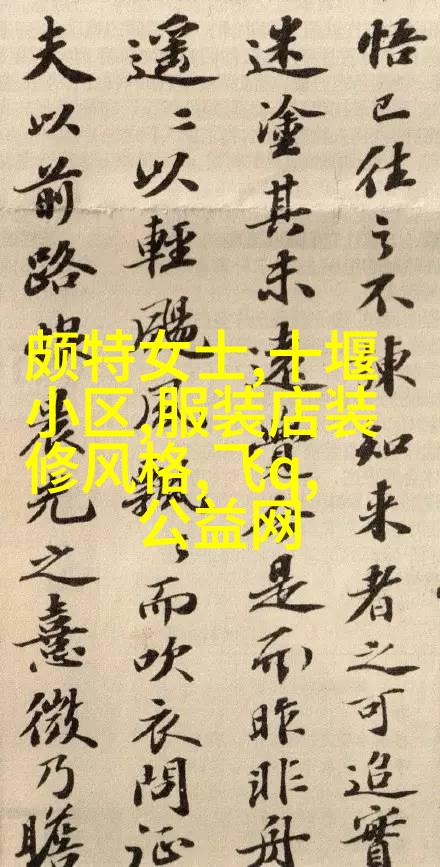 悟已往之不諫知来者之可追實
迷塗其未遠覺今是而昨非舟
遥〻以輕颺風飄〻而吹衣問征
夫以前路恨晨光之熹微乃瞻
颇特女士,十堰
小区,服装店装
修风格, 飞q,
公益网